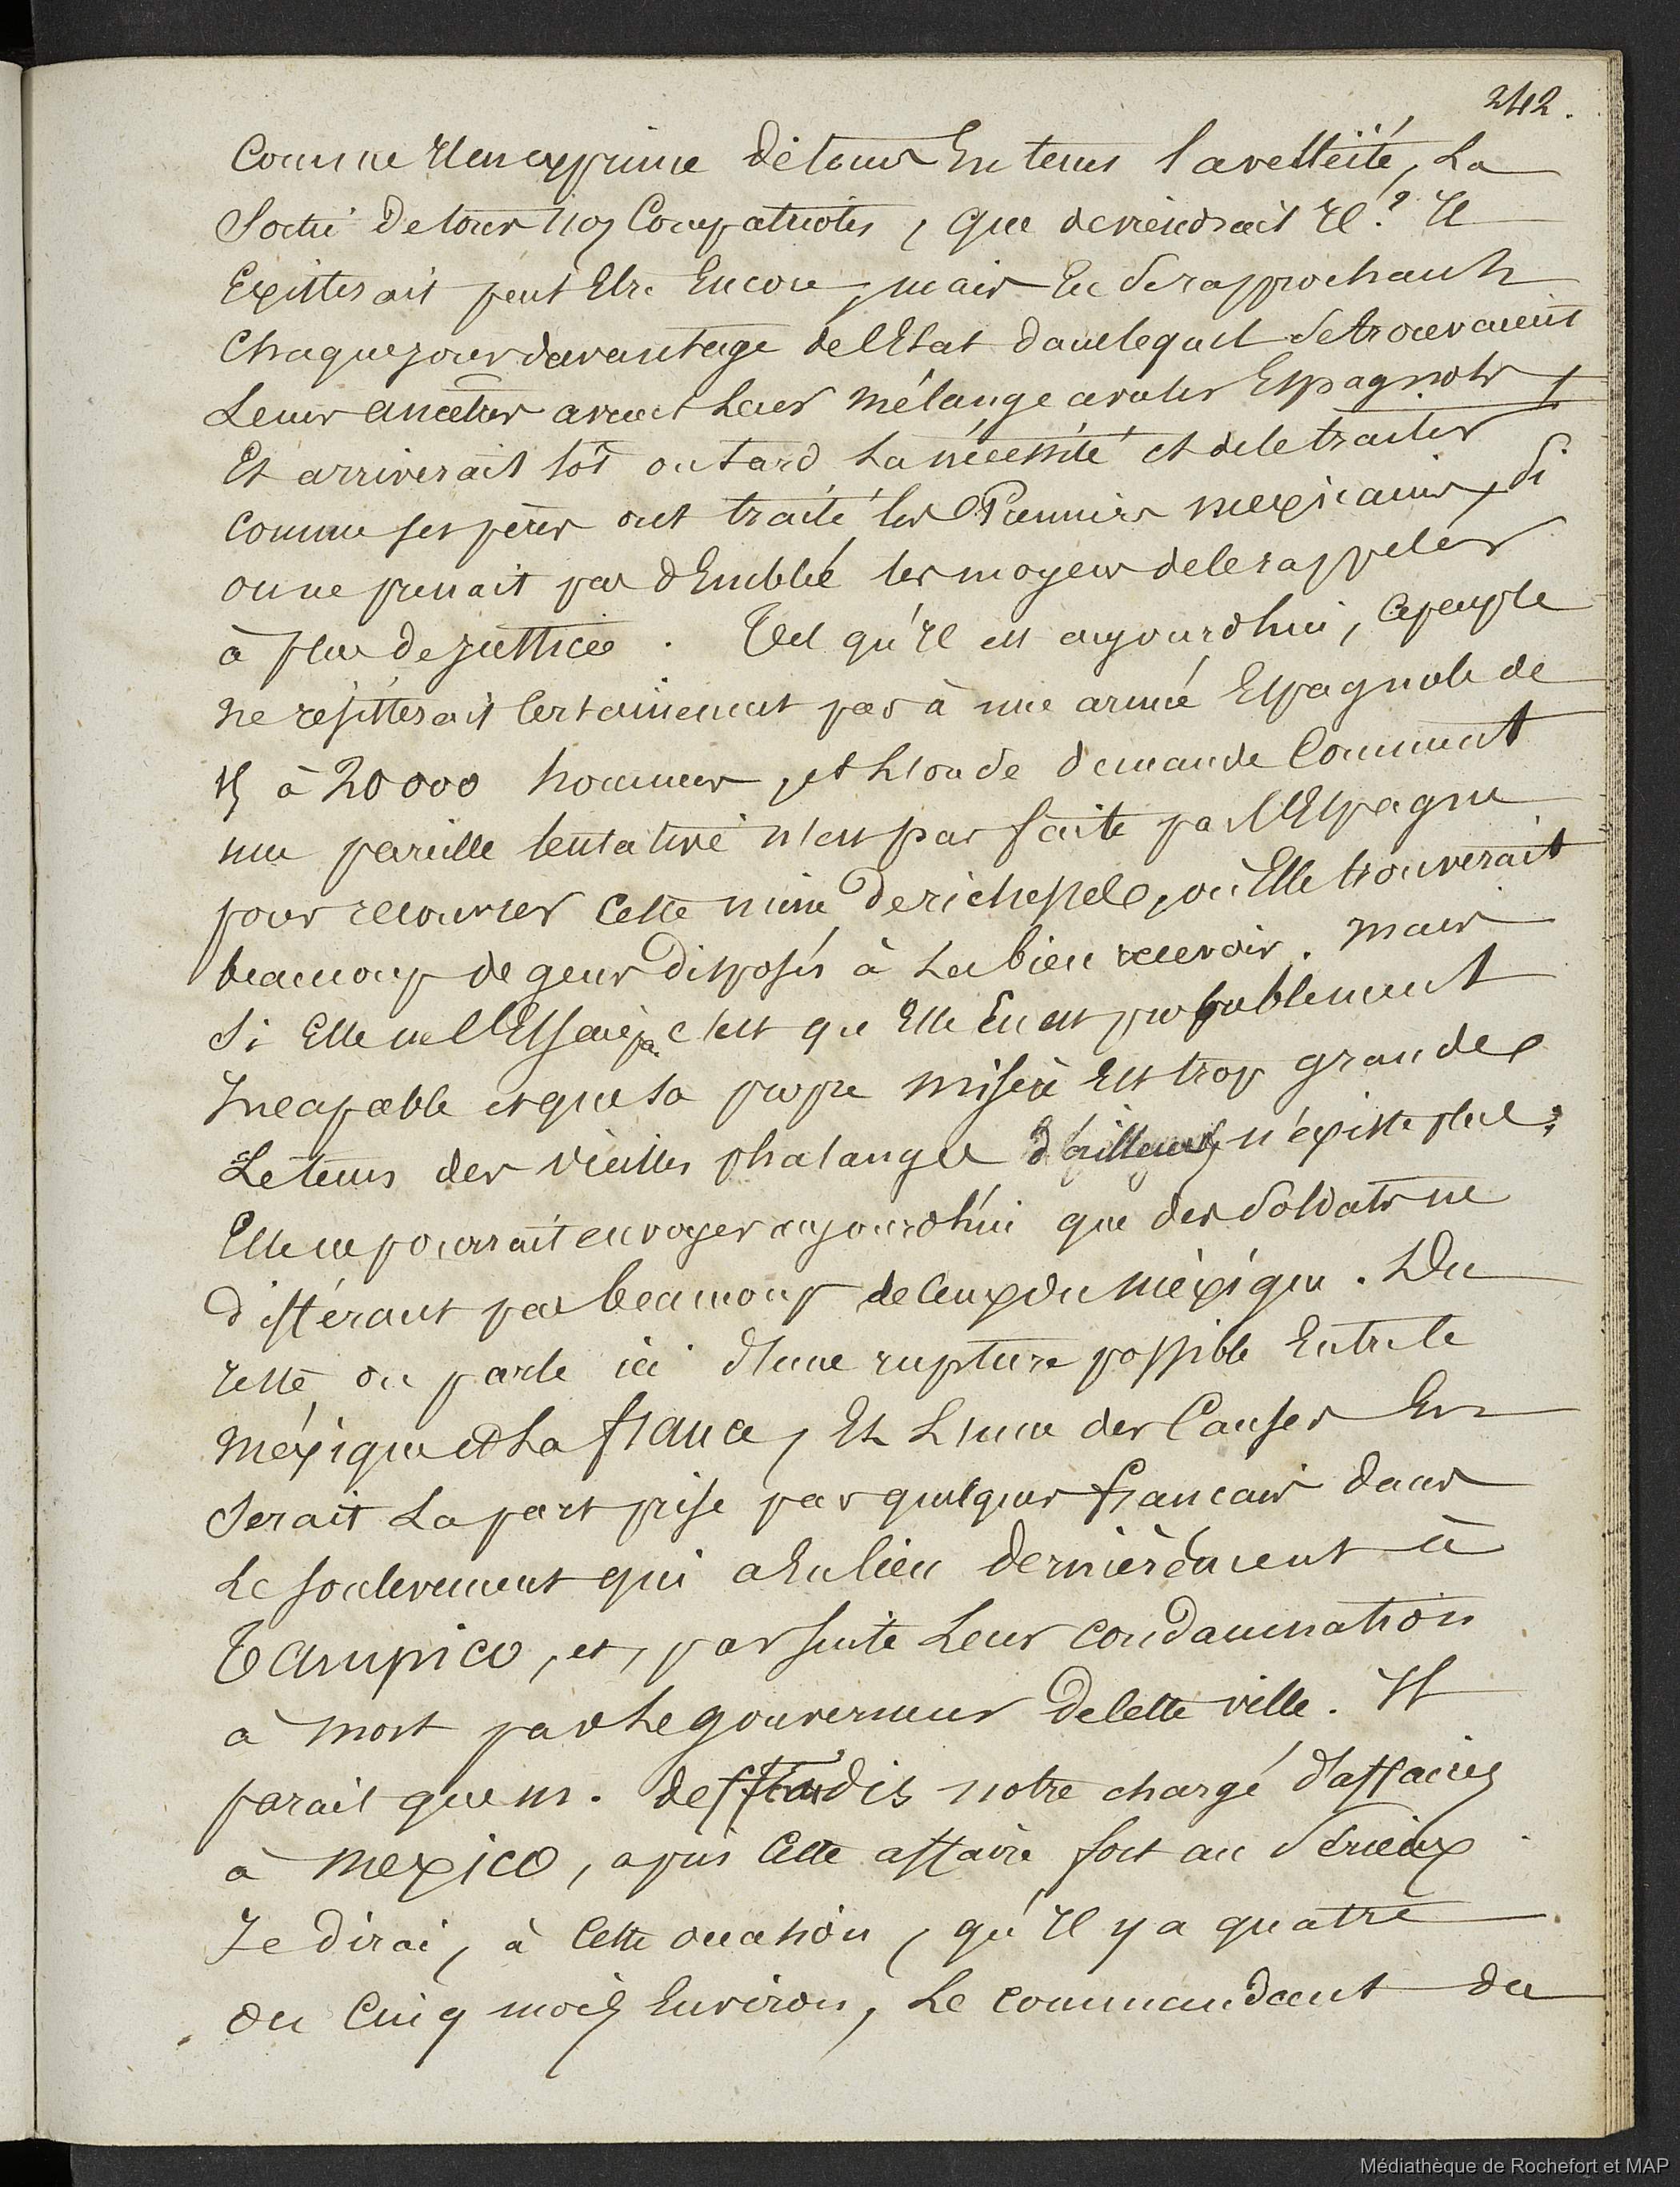 242.
Comme Il en exprime de tems En tems la velléité, La
Sortie De tous nos Compatriotes, que deviendrait Il? Il
Existerait peut Etre Encore, mais En Se rapprochant
Chaque jour davantage de l'Etat dans lequel Se trouvaient
Leurs ancêtres avant Leur mélange avec les Espagnols,
Et arriverait tôt ou tard La nécessité et de le traiter
comme ses pères ont traité les Premiers mexicains, Si
on ne prenait pas d'Emblée les moyens de le rappeler
à plus de justice. Tel qu'Il est aujourd'hui, ce peuple
ne résisterait Certainement pas à une armée Espagnole de
15 à 20000 hommes, et L'on se demande Comment
une pareille tentative n'est pas faite par l'Espagne
pour recouvrer Cette mine De richesse, où Elle trouverait
beaucoup de gens Disposés à La bien recevoir. mais
Si Elle ne l'Essaie pas c'est que Elle En est probablement
Incapable et que sa propre misère Est trop grande
Le tems des vieilles phalanges d'ailleurs n'éxiste plus;
Elle ne pourrait envoyer aujourd'hui que des Soldats ne
différant pas beaucoup de Ceux du Méxique. Du
reste on parle ici d'une rupture possible Entre le
méxique et La france, Et L'une des Causes En
Serait La part prise par quelques francais dans
Le soulevement qui a Eu lieu dernièrement à
Tampico, et, par suite Leur condamnation
à mort par Le gouverneur De Cette ville. Il
parait que m. deffaudis notre chargé d'affaires
à Mexico, a pris Cette affaire fort au Sérieux
Je dirai, à Cette occasion, qu'Il y a quatre
ou Cinq mois Environ, Le commandant du
Médiathèque de Rochefort et MAP